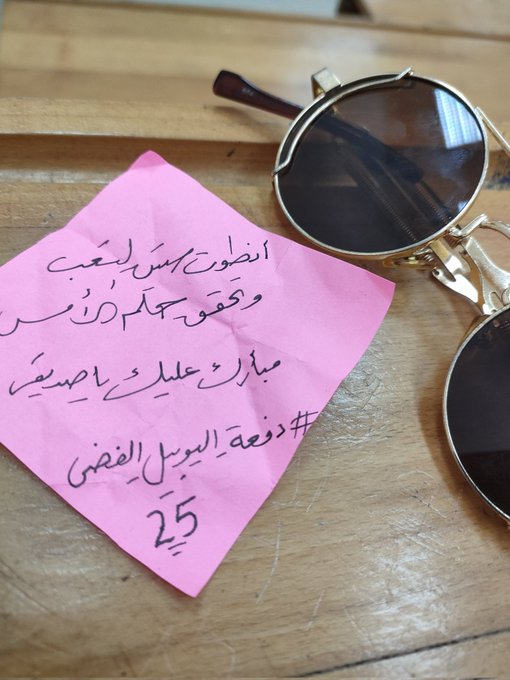 انطوت سنين التعب
وتحقق حلم الأمس
مبارك عليك يا صديقي
#دفعة_اليوبيل_الفضي
25